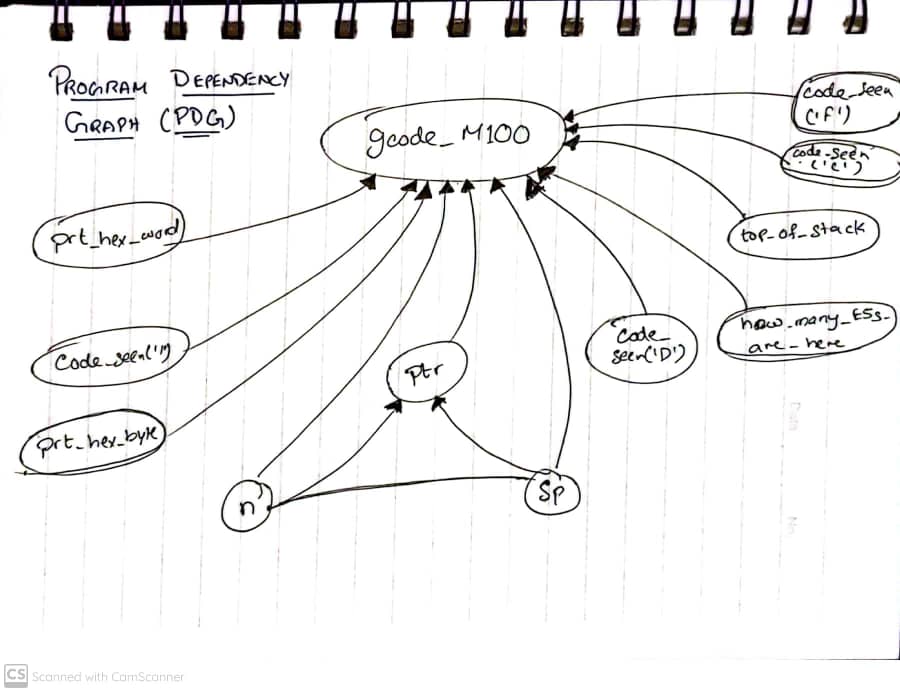 PROGRAM DEPENDENCY
GRAPH (PDG)
gcode_M100
code_seen
('F')
code_seen
('C')
prt_hex_word
top_of_stack
how_many_E5s_
are_here
Code_
seen('D')
Code_seen('I')
ptr
prt_hex_byte
n
SP
CS Scanned with CamScanner